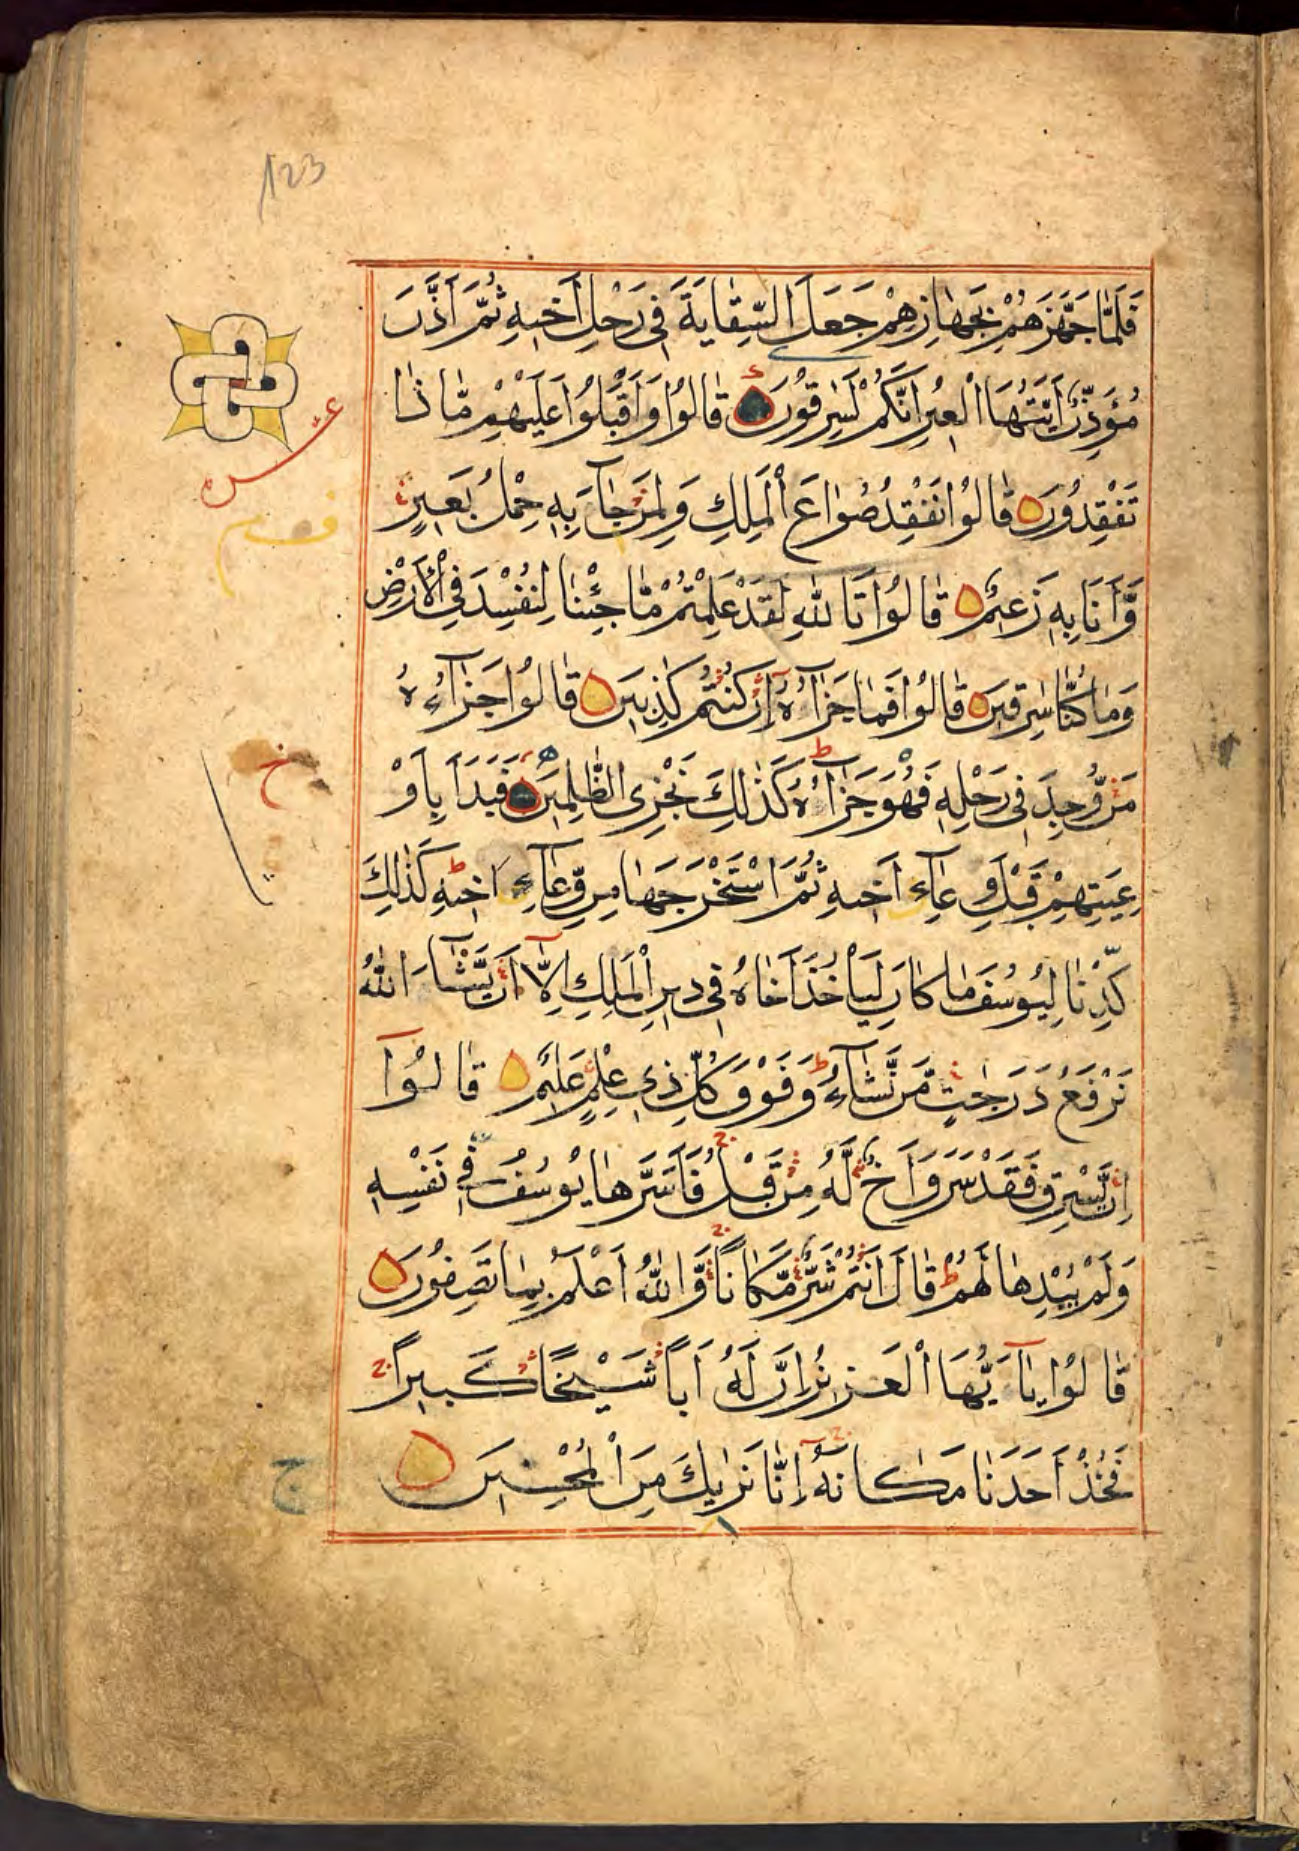 123
فَلَمَّا جَهَّزَهُمْ بِجَهَازِهِمْ جَعَلَ السِّقَايَةَ فِي رَحْلِ أَخِيهِ ثُمَّ أَذَّنَ
مُؤَذِّنٌ أَيَّتُهَا الْعِيرُ إِنَّكُمْ لَسٰرِقُونَ قَالُوا وَأَقْبَلُوا عَلَيْهِمْ مَّا ذَا
تَفْقِدُونَ قَالُوا نَفْقِدُ صُوَاعَ الْمَلِكِ وَلِمَنْ جَآءَ بِهِ حِمْلُ بَعِيرٍ
وَّأَنَا بِهِ زَعِيمٌ قَالُوا تَاللّٰهِ لَقَدْ عَلِمْتُمْ مَّا جِئْنَا لِنُفْسِدَ فِي الْأَرْضِ
وَمَا كُنَّا سٰرِقِينَ قَالُوا فَمَا جَزَآؤُهٗ إِنْ كُنْتُمْ كٰذِبِينَ قَالُوا جَزَآؤُهٗ
مَنْ وُّجِدَ فِي رَحْلِهِ فَهُوَ جَزَآؤُهٗ كَذٰلِكَ نَجْزِي الظّٰلِمِينَ فَبَدَأَ بِأَوْ
عِيَتِهِمْ قَبْلَ وِعَآءِ أَخِيهِ ثُمَّ اسْتَخْرَجَهَا مِنْ وِّعَآءِ أَخِيهِ كَذٰلِكَ
كِدْنَا لِيُوسُفَ مَا كَانَ لِيَأْخُذَ أَخَاهُ فِي دِينِ الْمَلِكِ إِلَّآ أَنْ يَّشَآءَ اللّٰهُ
نَرْفَعُ دَرَجٰتٍ مَّنْ نَّشَآءُ وَفَوْقَ كُلِّ ذِي عِلْمٍ عَلِيمٌ قَالُوٓا
إِنْ يَّسْرِقْ فَقَدْ سَرَقَ أَخٌ لَّهُ مِنْ قَبْلُ فَأَسَرَّهَا يُوسُفُ فِي نَفْسِهِ
وَلَمْ يُبْدِهَا لَهُمْ قَالَ أَنْتُمْ شَرٌّ مَّكَانًا وَّاللّٰهُ أَعْلَمُ بِمَا تَصِفُونَ
قَالُوا يَآ أَيُّهَا الْعَزِيزُ إِنَّ لَهُ أَبًا شَيْخًا كَبِيرًا
فَخُذْ أَحَدَنَا مَكَانَهُ إِنَّا نَرٰيكَ مِنَ الْمُحْسِنِينَ